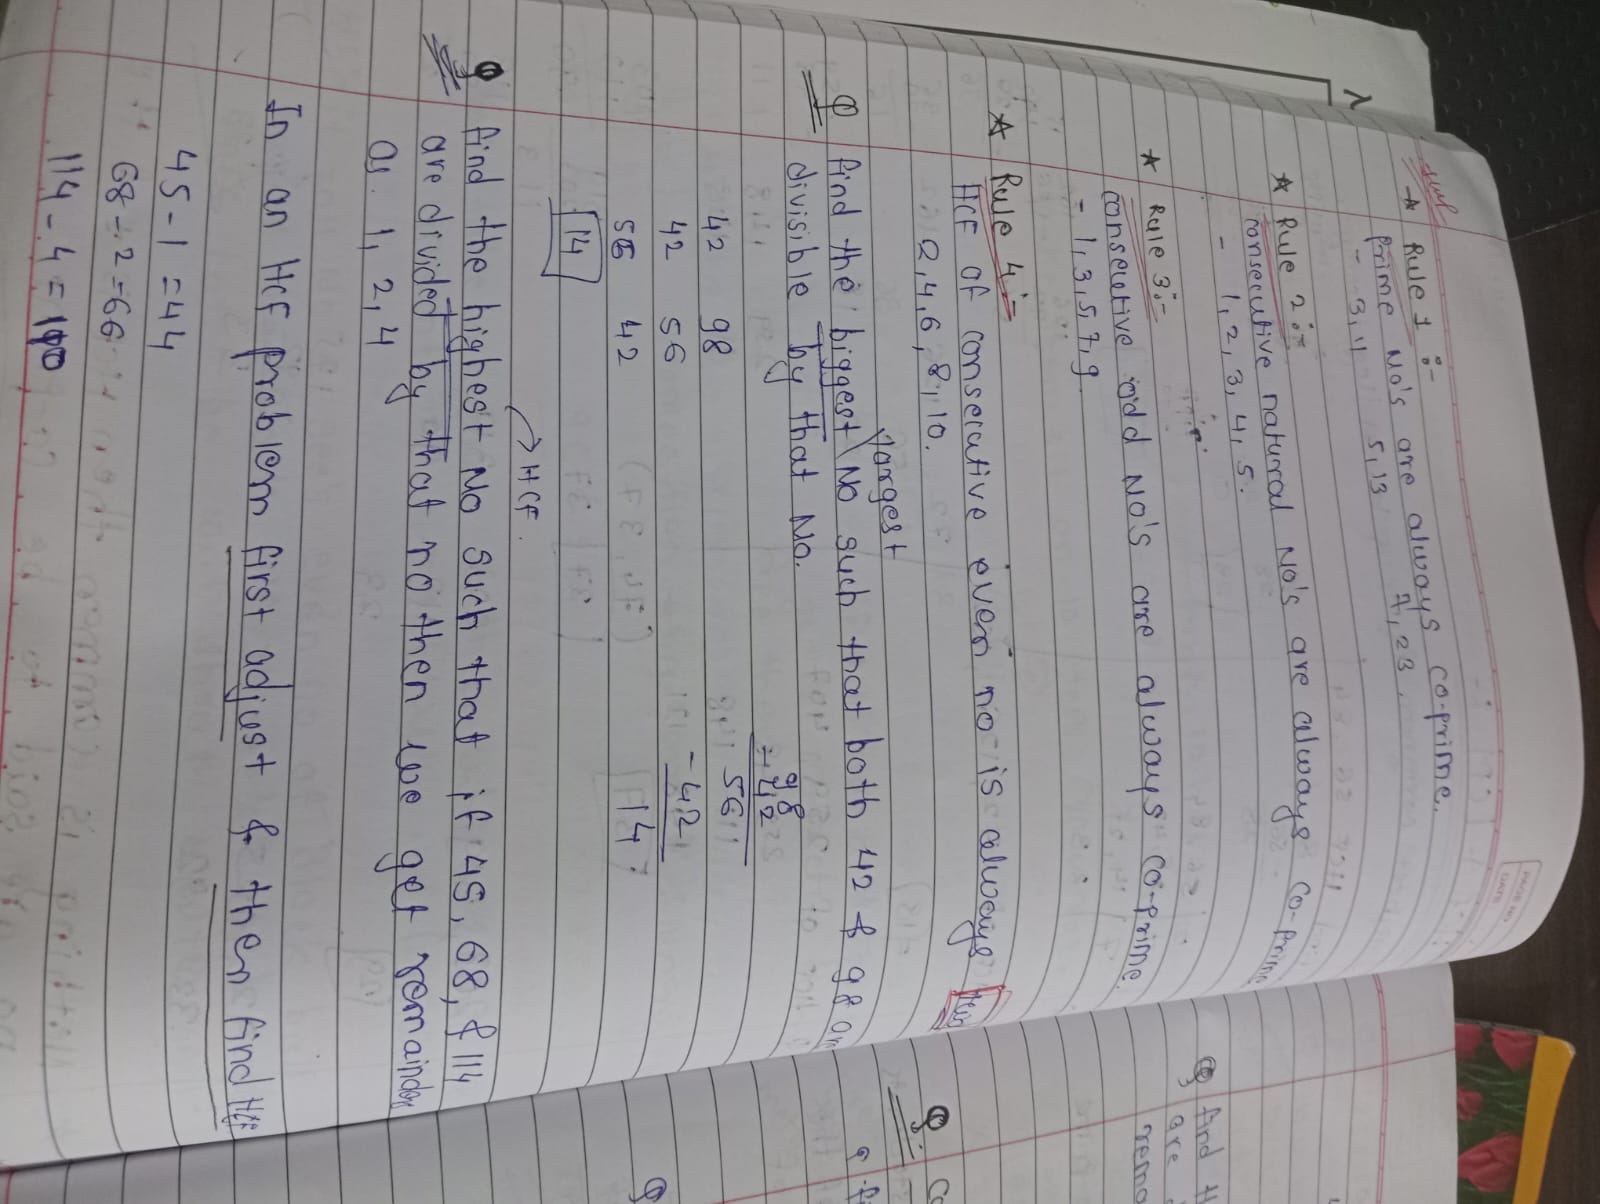 PAGE NO
DATE
★ Rule 1 :-
Prime No's are always co-prime.
- 3,11 5,13 7,23
★ Rule 2 :-
consecutive natural No's are always co-prime
- 1, 2, 3, 4, 5.
★ Rule 3 :-
consecutive odd No's are always co-prime.
- 1, 3, 5, 7, 9
★ Rule 4 :-
HCF of consecutive even no is always
2, 4, 6, 8, 10.
largest
Q find the biggest No such that both 42 & 98 are
divisible by that No.
98
- 42
42 98 56
42 56 - 42
56 42 14
14
HCF.
Q find the highest No such that if 45, 68, & 114
are divided by that no then we get remainders
as. 1, 2, 4
In an HCF problem first adjust & then find HCF
45 - 1 = 44
68 - 2 = 66
114 - 4 = 110
Q find
are
remo
Q